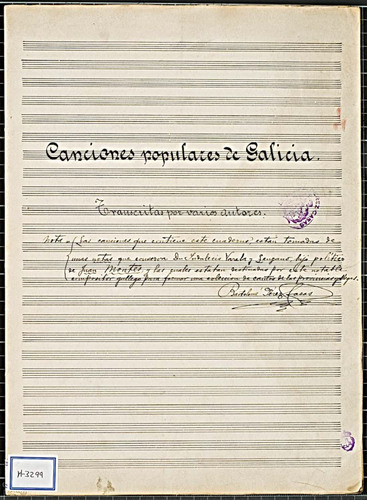 Canciones populares de Galicia.
Transcritas por varios autores.
Nota = Las canciones que contiene este cuaderno están tomadas de
unas notas que conserva Dn. Indalecio Varela y Lenzano, hijo político
de Juan Montes y las cuales estaban destinadas por este notable
compositor gallego para formar una colección de cantos de las provincias gallegas.
Bartolomé Pérez Casas
H-3299